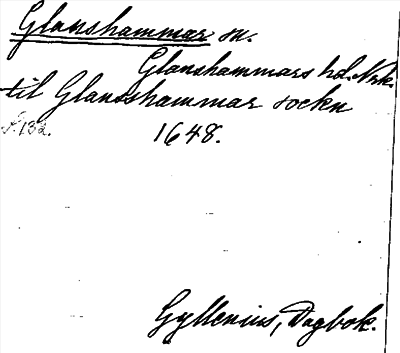 Glanshammar sn.
Glanshammars hd. Nrk.
til Glansshammar sockn
s. 132. 1648.
Gyllenius, Dagbok.